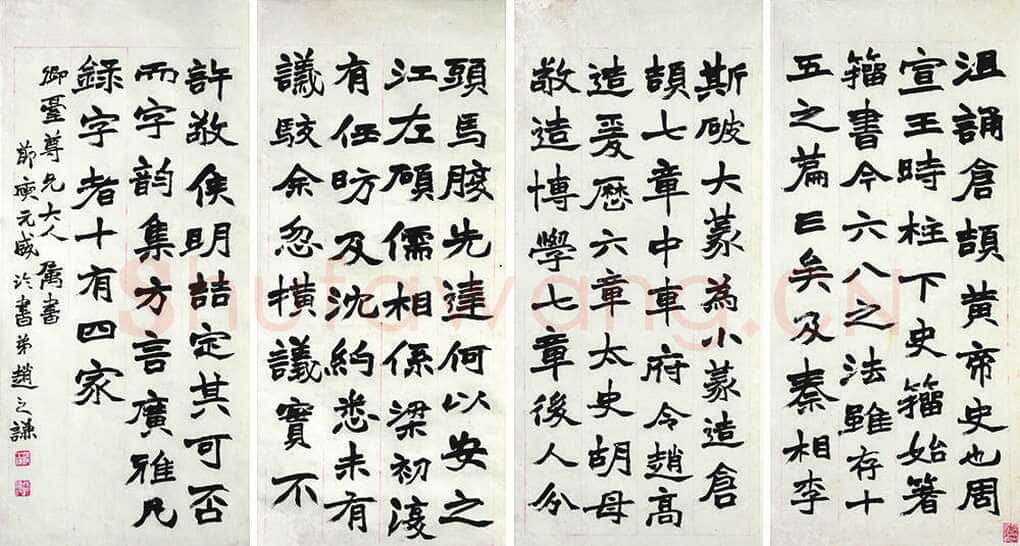 沮誦倉頡黃帝史也周
宣王時柱下史籀始著
籀書今六八之法雖存十
五之篇亡矣及秦相李
斯破大篆為小篆造倉
頡七章中車府令趙高
造爰歷六章太史胡母
敬造博學七章後人分
頭馬腰先達何以安之
江左碩儒相係梁初復
有任昉及沈約悉未有
議駭余忽橫議實不
許敬侯明喆定其可否
而字韵集方言廣雅凡
錄字者十有四家
卿臺尊兄大人屬書
節庾元威論書 弟趙之謙
Shufawang.CN